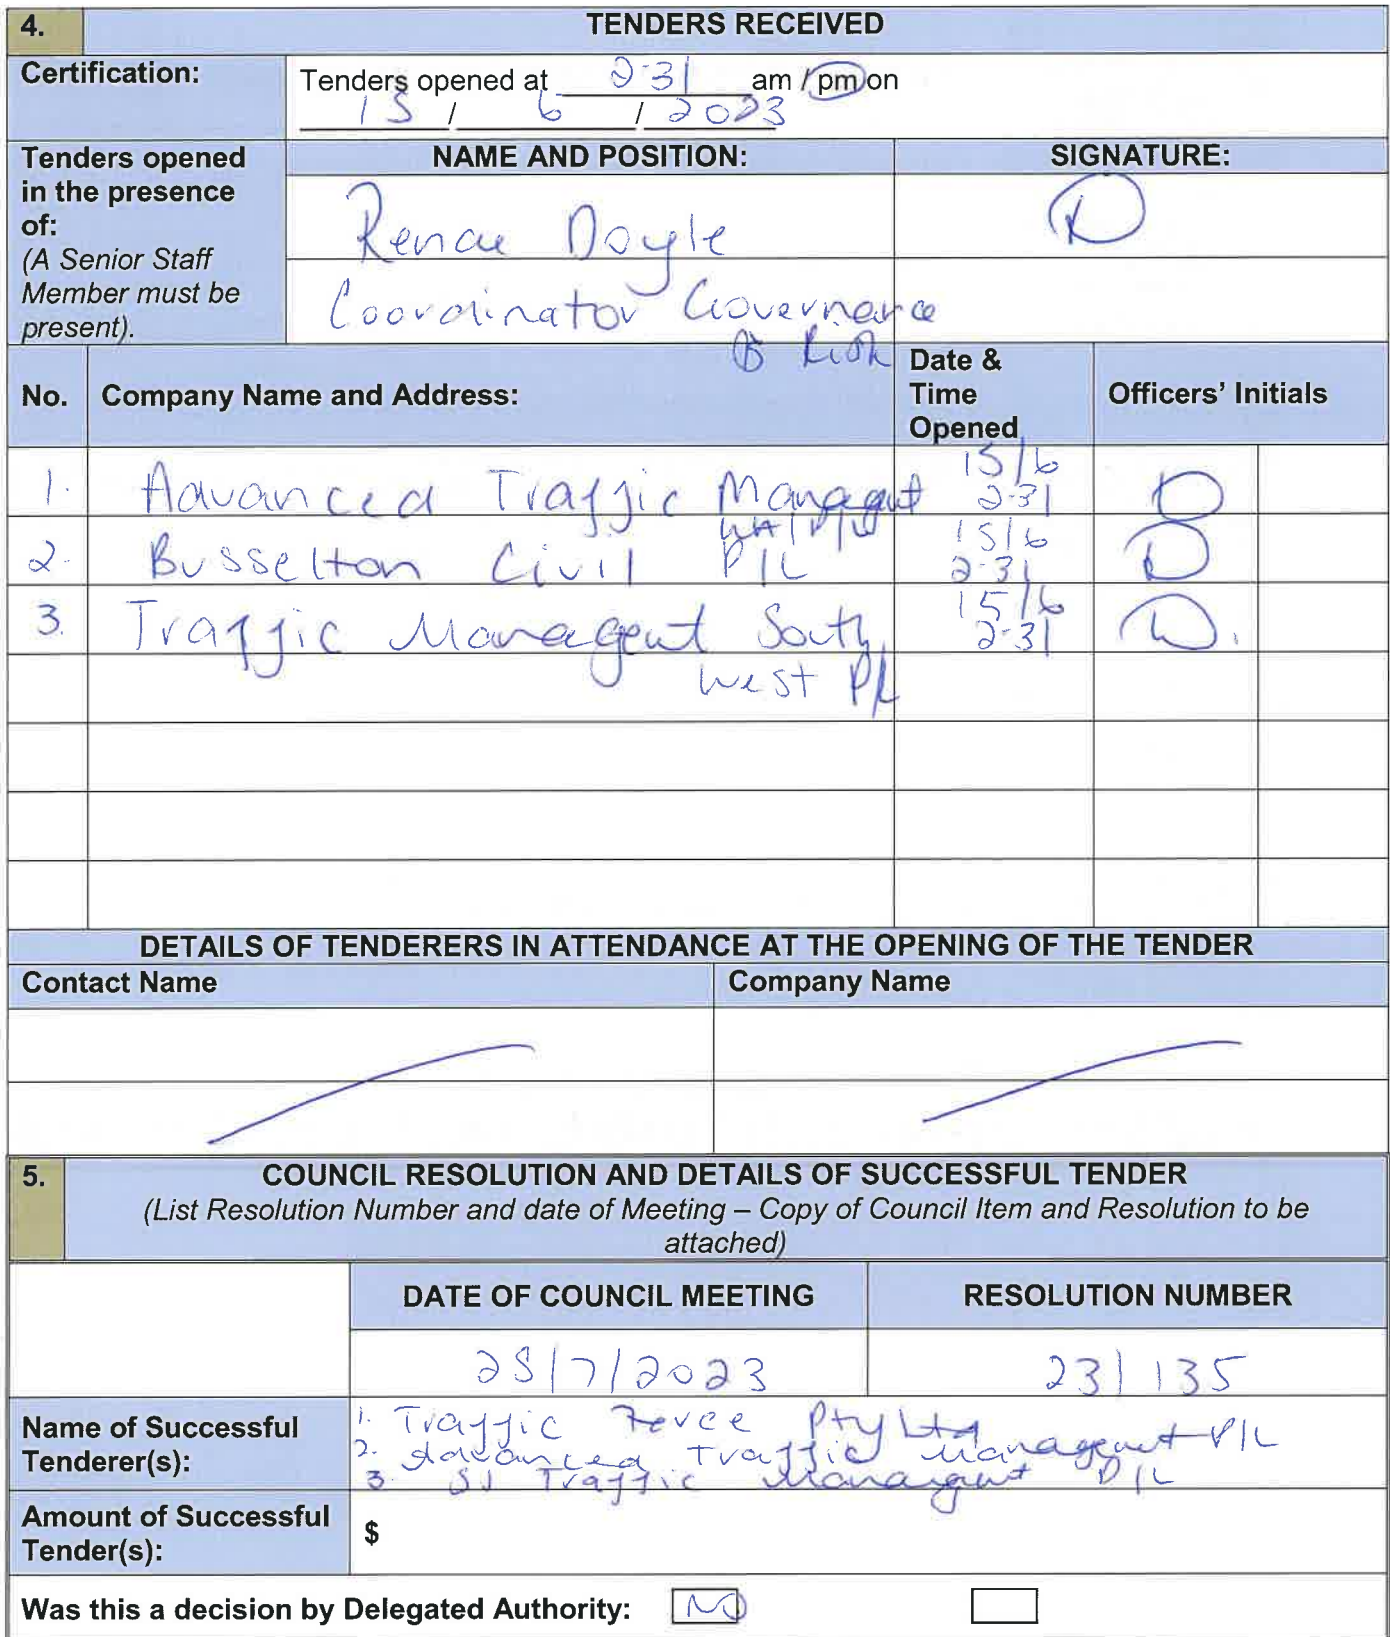 4. TENDERS RECEIVED
Certification: Tenders opened at 2·31 am / pm on
15 / 6 / 2023
Tenders opened in the presence of: (A Senior Staff Member must be present).
NAME AND POSITION: SIGNATURE:
Renae Doyle
Coordinator Governance
& Risk
No. Company Name and Address: Date & Time Opened Officers' Initials
1. Advanced Traffic Managent 15/6 2·31
WA P/L
2. Busselton Civil P/L 15/6 2·31
3. Traffic Managent South 15/6 2·31
West P/L
DETAILS OF TENDERERS IN ATTENDANCE AT THE OPENING OF THE TENDER
Contact Name Company Name
5. COUNCIL RESOLUTION AND DETAILS OF SUCCESSFUL TENDER
(List Resolution Number and date of Meeting – Copy of Council Item and Resolution to be
attached)
DATE OF COUNCIL MEETING RESOLUTION NUMBER
25/7/2023 23/135
Name of Successful Tenderer(s):
1. Traffic Force Pty Ltd
2. Advanced Traffic Managent P/L
3. SJ Traffic Managent P/L
Amount of Successful Tender(s): $
Was this a decision by Delegated Authority: NO